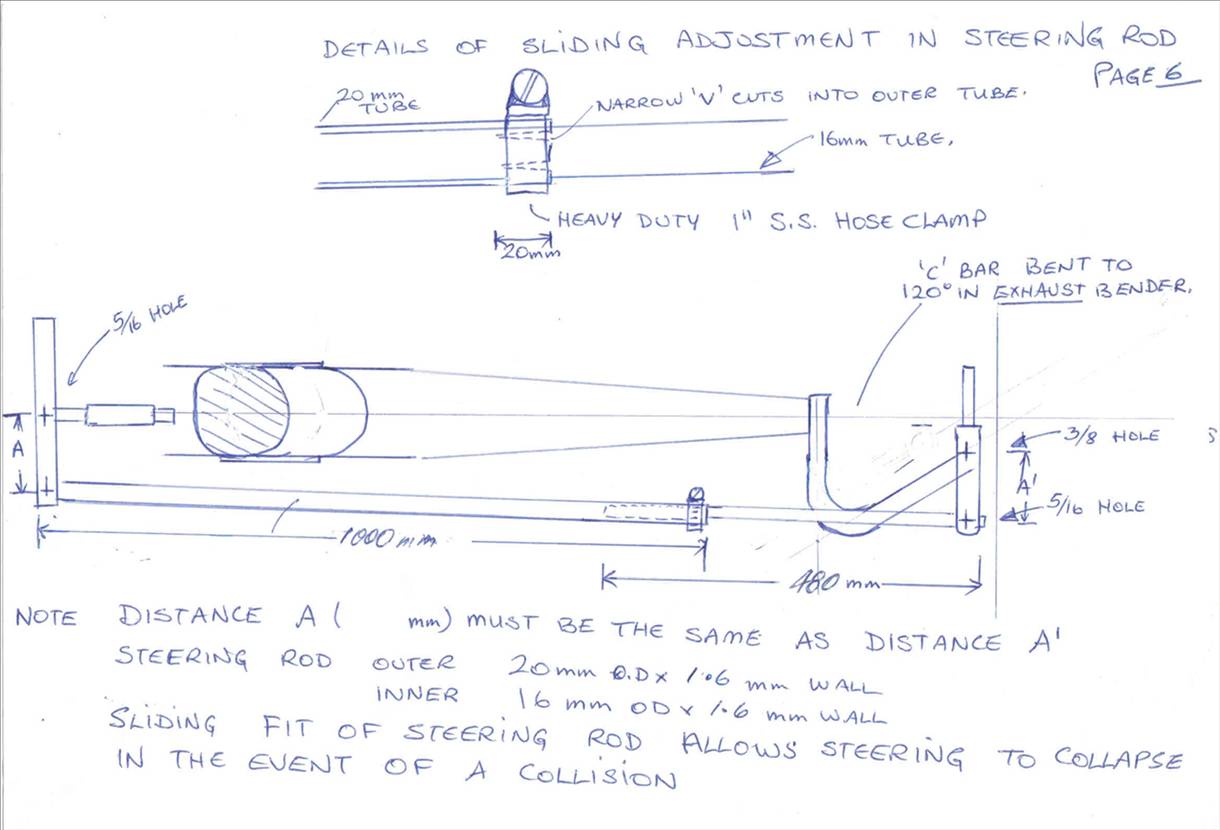 DETAILS OF SLIDING ADJUSTMENT IN STEERING ROD
PAGE 6
20 mm
TUBE
NARROW 'V' CUTS INTO OUTER TUBE.
16mm TUBE.
HEAVY DUTY 1" S.S. HOSE CLAMP
20mm
'C' BAR BENT TO
120° IN EXHAUST BENDER.
5/16 HOLE
A
3/8 HOLE
A'
5/16 HOLE
1000 mm
480 mm
NOTE DISTANCE A ( mm) MUST BE THE SAME AS DISTANCE A'
STEERING ROD OUTER 20mm O.D x 1.6 mm WALL
INNER 16 mm OD x 1.6 mm WALL
SLIDING FIT OF STEERING ROD ALLOWS STEERING TO COLLAPSE
IN THE EVENT OF A COLLISION